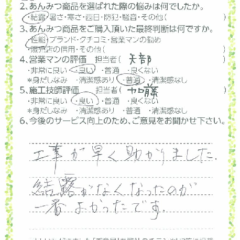 2.あんみつ商品を選ばれた際の悩みは何でしたか。
結露・暑さ・寒さ・西日・防犯・騒音・その他(　　)
3.あんみつ商品をご購入頂いた最終判断は何ですか。
性能・ブランド・クチコミ・営業マンの勧め
・その他(　　)
4.営業マンの評価　担当者(矢部　　)
・非常に良い・良い・普通・良くない
*身だしなみ　・清潔感あり・普通・清潔感なし
5.施工技術評価　担当者(加藤　　)
・非常に良い・良い・普通・良くない
*身だしなみ　・清潔感あり・普通・清潔感なし
6.今後のサービス向上のため、ご意見をお聞かせ下さい。
工事が早く助かりました。
結露がなくなったのが
一番よかったです。